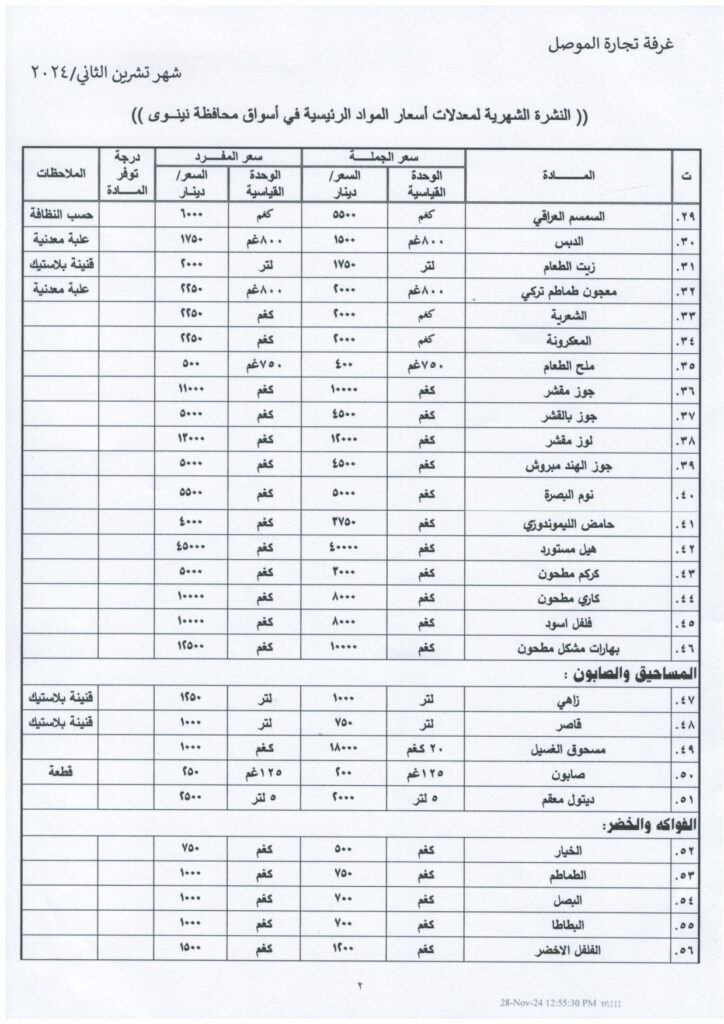 غرفة تجارة الموصل
شهر تشرين الثاني/٢٠٢٤
(( النشرة الشهرية لمعدلات أسعار المواد الرئيسية في أسواق محافظة نينوى ))
ت المادة سعر الجملة سعر المفرد درجة توفر المادة الملاحظات
الوحدة القياسية السعر/ دينار الوحدة القياسية السعر/ دينار
٢٩. السمسم العراقي كغم ٥٥٠٠ كغم ٦٠٠٠ حسب النظافة
٣٠. الدبس ٨٠٠غم ١٥٠٠ ٨٠٠غم ١٧٥٠ علبة معدنية
٣١. زيت الطعام لتر ١٧٥٠ لتر ٢٠٠٠ قنينة بلاستيك
٣٢. معجون طماطم تركي ٨٠٠غم ٢٠٠٠ ٨٠٠غم ٢٢٥٠ علبة معدنية
٣٣. الشعرية كغم ٢٠٠٠ كغم ٢٢٥٠
٣٤. المعكرونة كغم ٢٠٠٠ كغم ٢٢٥٠
٣٥. ملح الطعام ٧٥٠غم ٤٠٠ ٧٥٠غم ٥٠٠
٣٦. جوز مقشر كغم ١٠٠٠٠ كغم ١١٠٠٠
٣٧. جوز بالقشر كغم ٤٥٠٠ كغم ٥٠٠٠
٣٨. لوز مقشر كغم ١٢٠٠٠ كغم ١٣٠٠٠
٣٩. جوز الهند مبروش كغم ٤٥٠٠ كغم ٥٠٠٠
٤٠. نوم البصرة كغم ٥٠٠٠ كغم ٥٥٠٠
٤١. حامض الليموندوزي كغم ٣٧٥٠ كغم ٤٠٠٠
٤٢. هيل مستورد كغم ٤٠٠٠٠ كغم ٤٥٠٠٠
٤٣. كركم مطحون كغم ٣٠٠٠ كغم ٥٠٠٠
٤٤. كاري مطحون كغم ٨٠٠٠ كغم ١٠٠٠٠
٤٥. فلفل اسود كغم ٨٠٠٠ كغم ١٠٠٠٠
٤٦. بهارات مشكل مطحون كغم ١٠٠٠٠ كغم ١٢٥٠٠
المساحيق والصابون :
٤٧. زاهي لتر ١٠٠٠ لتر ١٢٥٠ قنينة بلاستيك
٤٨. قاصر لتر ٧٥٠ لتر ١٠٠٠ قنينة بلاستيك
٤٩. مسحوق الغسيل ٢٠ كغم ١٨٠٠٠ كغم ١٠٠٠
٥٠. صابون ١٢٥غم ٢٠٠ ١٢٥غم ٢٥٠ قطعة
٥١. ديتول معقم ٥ لتر ٢٠٠٠ ٥ لتر ٢٥٠٠
الفواكه والخضر:
٥٢. الخيار كغم ٥٠٠ كغم ٧٥٠
٥٣. الطماطم كغم ٧٥٠ كغم ١٠٠٠
٥٤. البصل كغم ٧٠٠ كغم ١٠٠٠
٥٥. البطاطا كغم ٧٠٠ كغم ١٠٠٠
٥٦. الفلفل الاخضر كغم ١٢٠٠ كغم ١٥٠٠
٢
28-Nov-24 12:55:30 PM